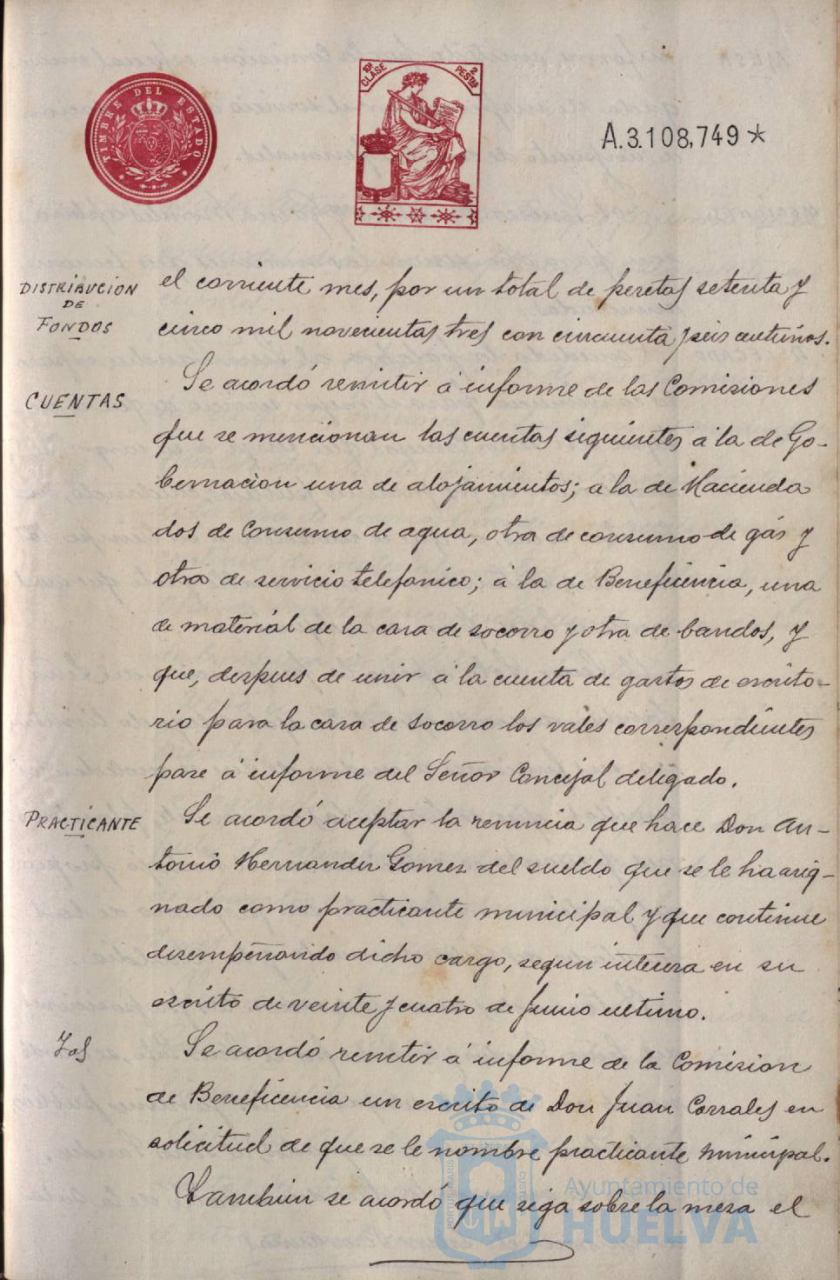 TIMBRE DEL ESTADO
10ª CLASE
2 PESTAS
A.3.108,749*
DISTRIBUCION
DE
FONDOS
el corriente mes, por un total de pesetas setenta y
cinco mil novecientas tres con cincuenta y seis centimos.
CUENTAS
Se acordó remitir á informe de las Comisiones
que se mencionan las cuentas siguientes á la de Go-
bernacion una de alojamientos; á la de Hacienda
dos de consumo de agua, otra de consumo de gas y
otra de servicio telefonico; á la de Beneficencia, una
de material de la casa de socorro y otra de bandos, y
que, despues de unir á la cuenta de gastos de escrito-
rio para la casa de socorro los vales correspondientes
pase á informe del Señor Concejal delegado.
PRACTICANTE
Se acordó aceptar la renuncia que hace Don An-
tonio Hernandez Gomez del sueldo que se le ha asig-
nado como practicante municipal y que continue
desempeñando dicho cargo, segun interesa en su
escrito de veinte y cuatro de Junio ultimo.
Se acordó remitir á informe de la Comision
de Beneficencia un escrito de Don Juan Corrales en
solicitud de que se le nombre practicante municipal.
Tambien se acordó que siga sobre la mesa el
Ayuntamiento de
HUELVA